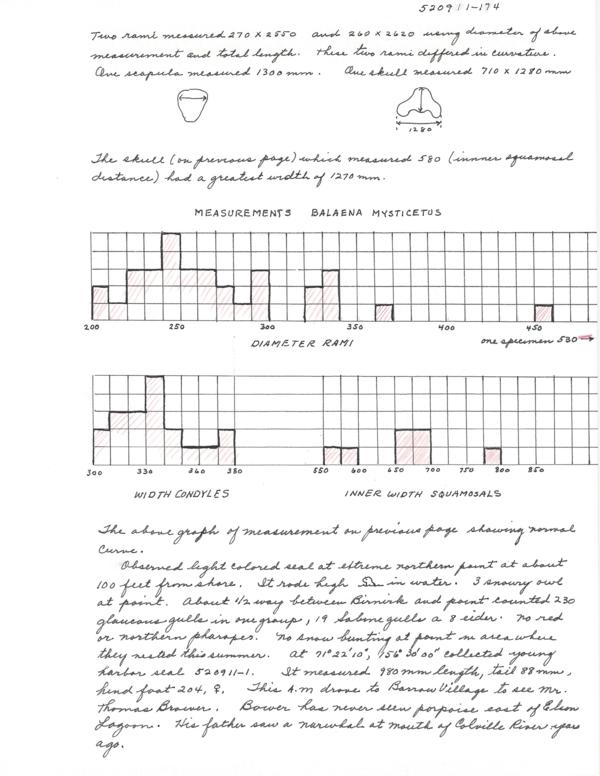 520911-174
Two rami measured 270 x 2550 and 260 x 2620 using diameter of above
measurement and total length. these two rami differed in curvature.
One scapula measured 1300 mm. One skull measured 710 x 1280 mm
1280
The skull (on previous page) which measured 580 (innner squamosal
distance) had a greatest width of 1270 mm.
MEASUREMENTS BALAENA MYSTICETUS
200 250 300 350 400 450
DIAMETER RAMI
one specimen 530 →
300 330 340 350 550 600 650 700 750 800 850
WIDTH CONDYLES INNER WIDTH SQUAMOSALS
The above graph of measurement on previous page showing normal
curve.
Observed light colored seal at extreme northern point at about
100 feet from shore. It rode high in water. 3 snowy owl
at point. About 1/2 way between Birnirk and point counted 230
glaucous gulls in one group, 19 Sabine gulls & 8 eider. No red
or northern pharopes. No snow bunting at point in area where
they nested this summer. At 71° 22' 10", 156° 30' 00" collected young
harbor seal 520911-1. It measured 980 mm length, tail 88 mm,
hind foot 204, ♀. This A.M drove to Barrow Village to see Mr.
Thomas Brower. Bower has never seen porpoise east of Elson
Lagoon. His father saw a narwhal at mouth of Colville River years
ago.